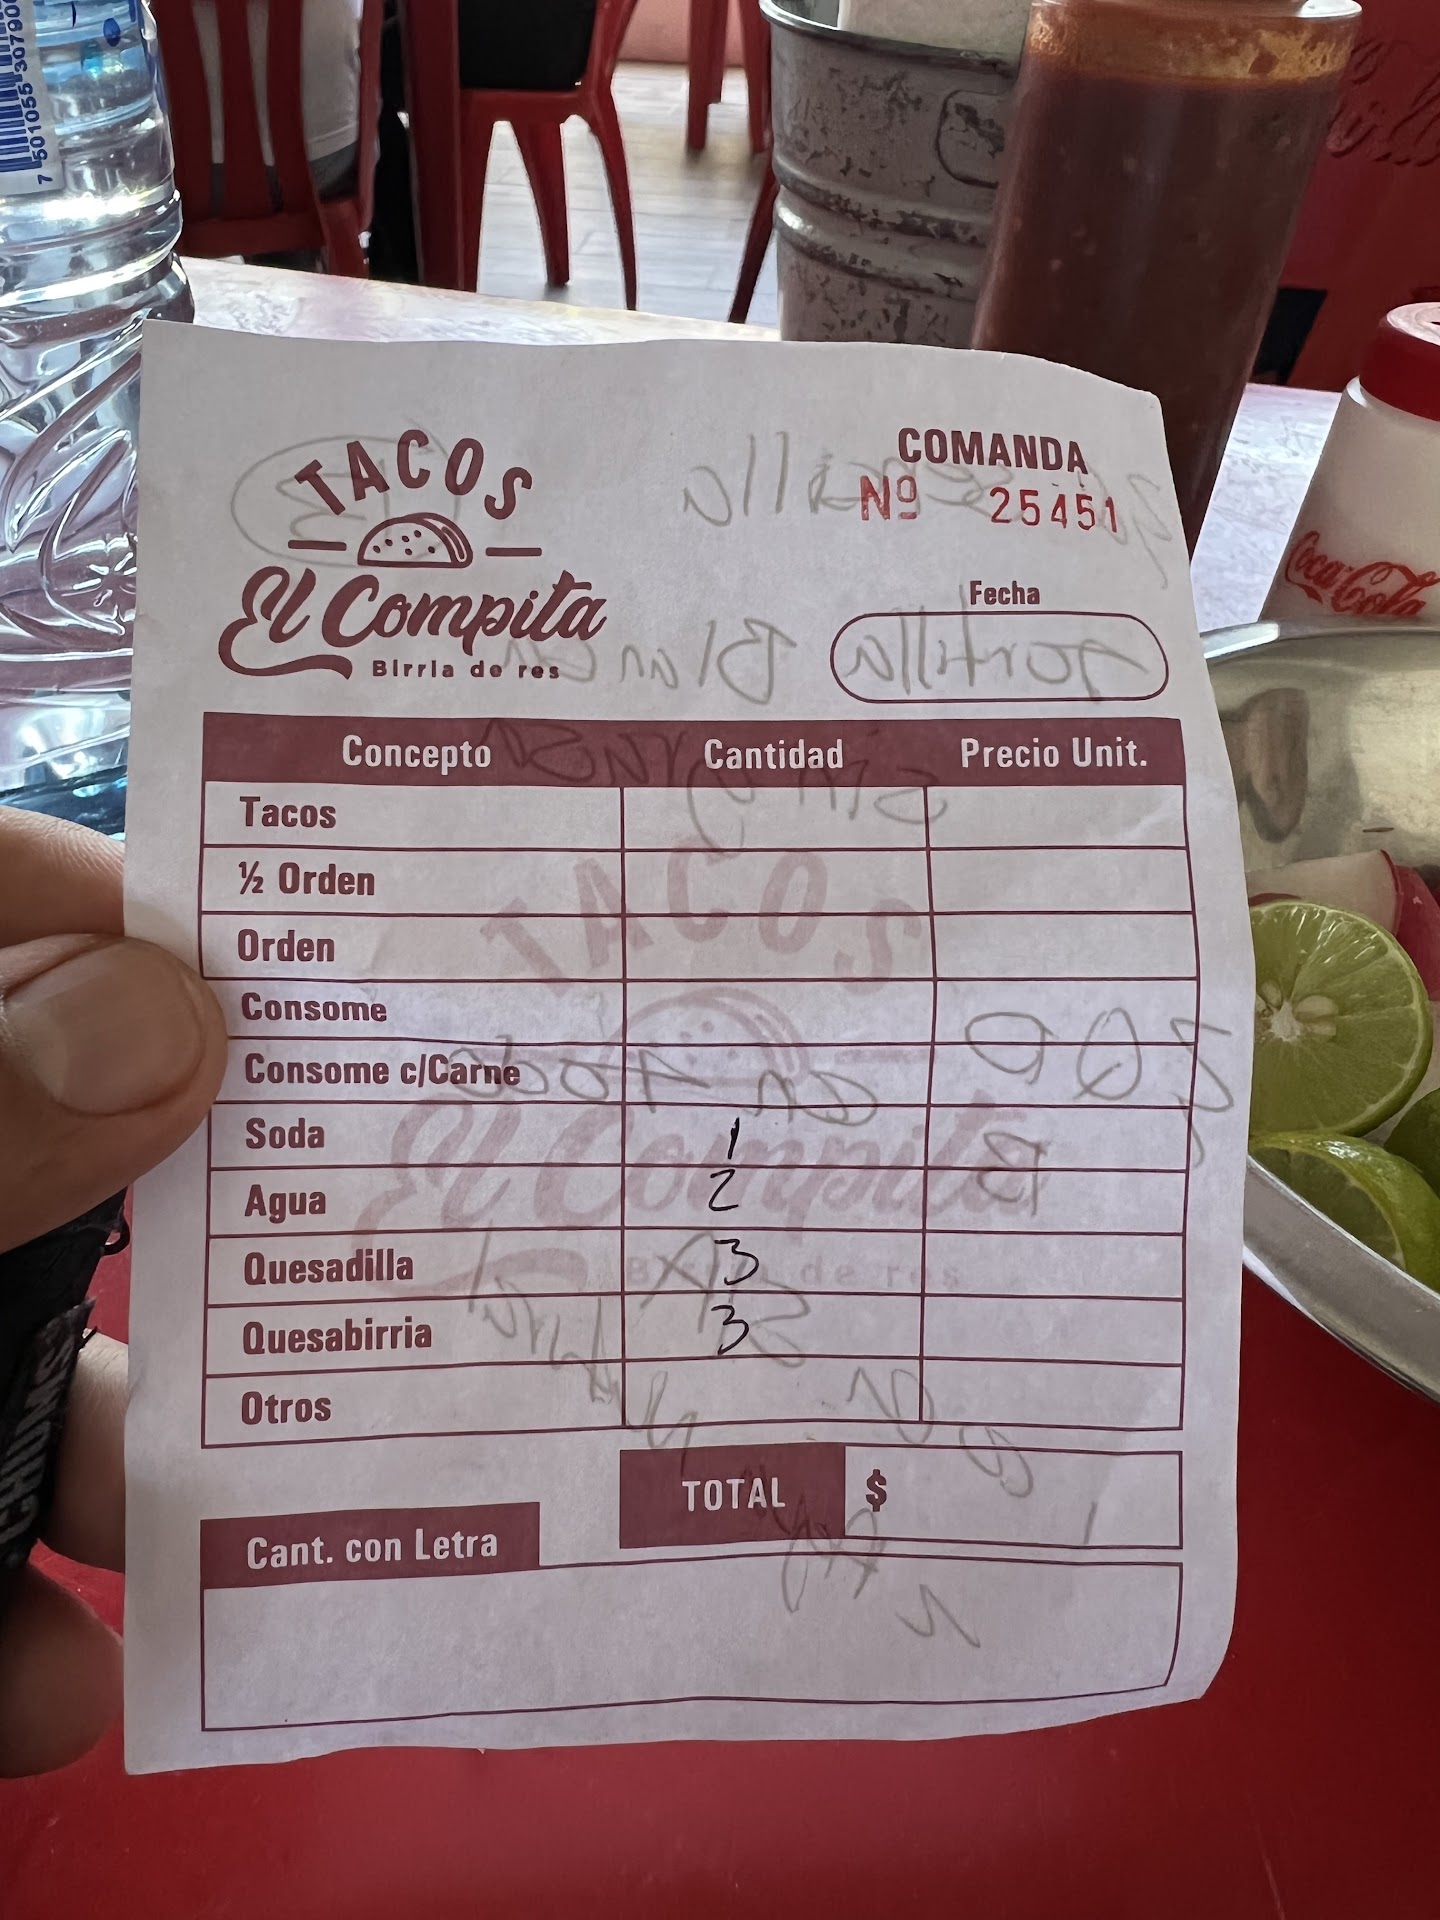 7 501055 30790
TACOS
El Compita
Birria de res
COMANDA
Nº 25451
Fecha
Concepto Cantidad Precio Unit.
Tacos
½ Orden
Orden
Consome
Consome c/Carne
Soda 1
Agua 2
Quesadilla 3
Quesabirria 3
Otros
TOTAL $
Cant. con Letra
Coca-Cola
CHUMS
tortilla Blanca
sin grasa
con todo